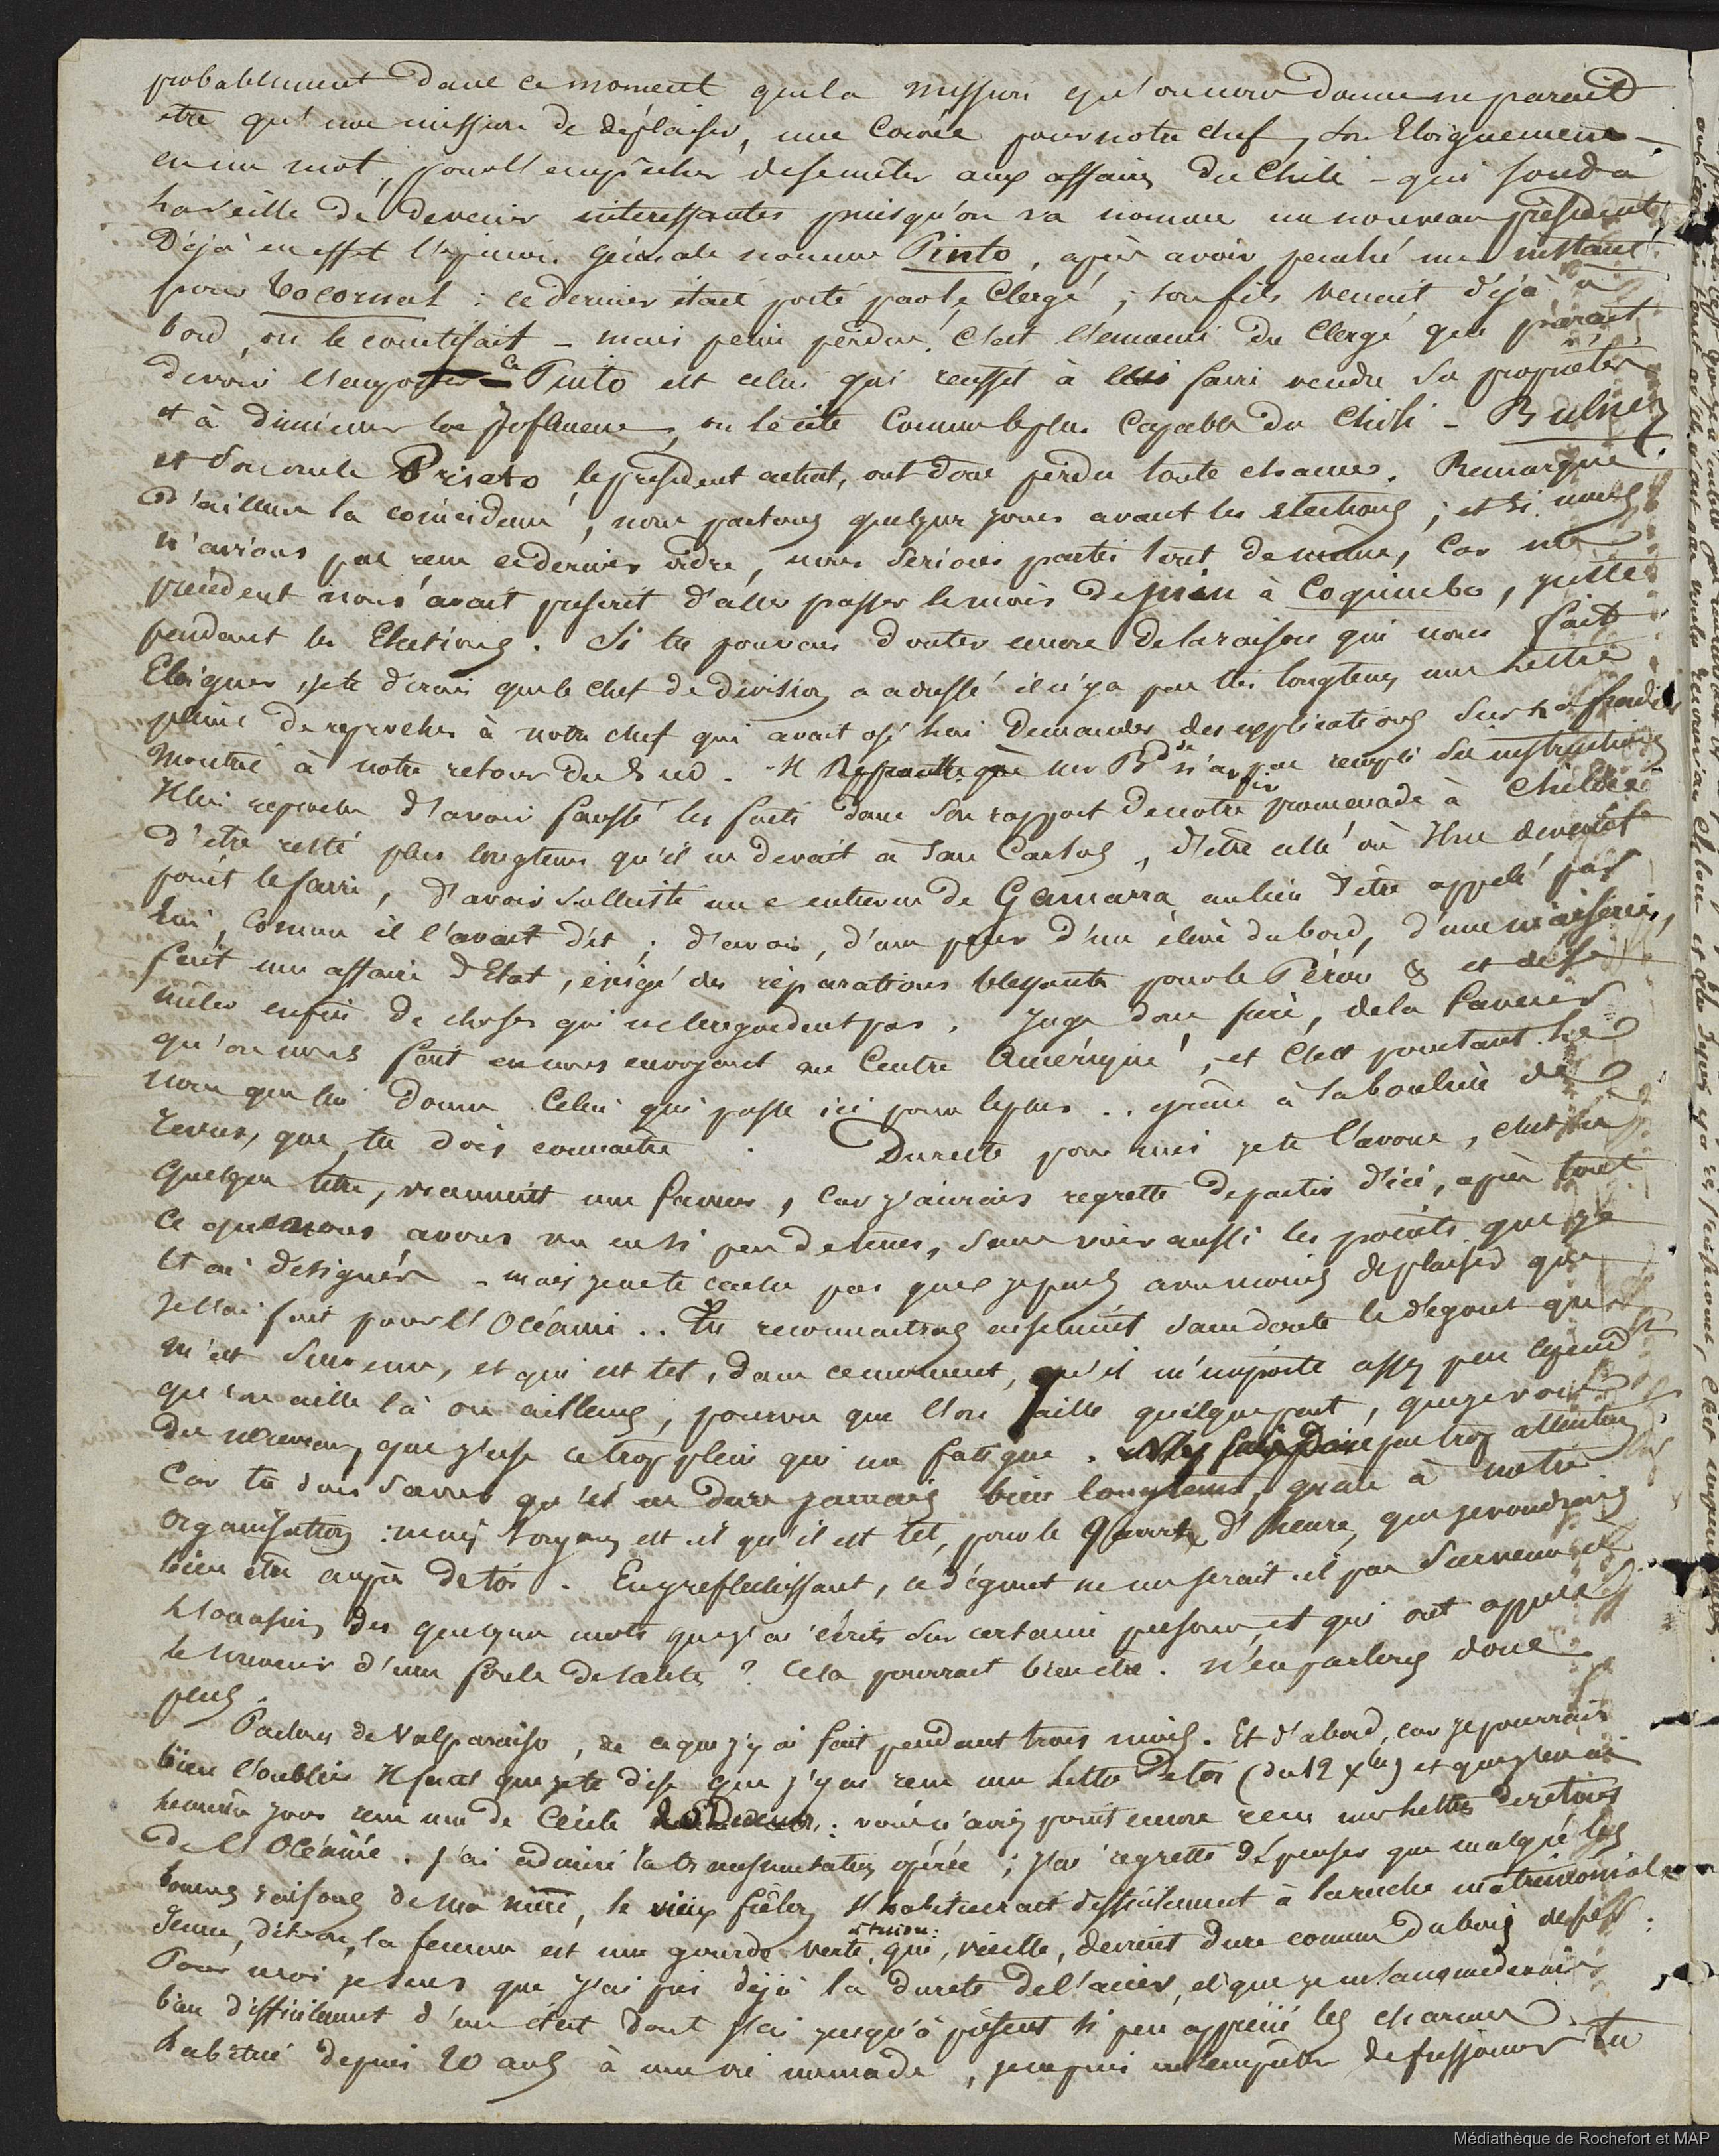 probablement dans ce moment que la mission qu'on nous donne ne parait
etre qu'une mission de déplaisir, une Corvée pour notre chef, Son Eloignement -
en un mot, pour l'empêcher de se mêler aux affaires du Chili - qui sont à
la veille de devenir interessantes puisqu'on va nommer un nouveau président.
Déjà en effet l'opinion générale nomme Pinto, après avoir penché un instant
pour Tocornal : ce dernier était porté par le Clergé ; son fils venait déjà à
bord, on le courtisait - mais peine perdue! C'est l'ennemi du Clergé qui parait
devoir l'emporter Ce Pinto est celui qui reussit à faire vendre Sa propriété
et à diminuer Son Influence, on le cite Comme le plus Capable du Chili - Bulnez
et Son oncle Prieto, le président actuel, ont donc perdu toute chance. Remarque
d'ailleurs la coïncidence, nous partons quelques jours avant les elections ; et Si nous
n'avions pas reçu ce dernier ordre, nous Serions partis tout de meme, Car un
précédent nous avait prescrit d'aller passer le mois de Juin à Coquimbo, juste
pendant les Elections. Si tu pouvais douter encore de la raison qui nous fait
Eloigner, je te dirais que le chef de division a adressé il n'y a pas très longtems une lettre
pleine de reproches à notre chef qui avait osé lui demander des explications Sur la froideur
montrée à notre retour du Sud. Il n'a pas rempli Ses instructions
Il lui reproche d'avoir faussé les faits dans Son rapport de notre promenade à Chiloë
d'etre resté plus longtems qu'il ne devait à San Carlos, d'être allé où Il ne devait
point le faire, d'avoir Sollicité une entrevue de Gamarra au lieu d'être appelé par
lui, Comme il l'avait dit ; d'avoir, d'une peur d'un élève du bord, d'une niaiserie,
fait une affaire d'Etat, exigé des réparations blessantes pour le Pérou & et de se
mêler enfin de choses qui ne le regardent pas. Juge donc frère, de la faveur
qu'on nous fait en nous envoyant au Centre Amérique, et C'est pourtant le
nom que lui donne Celui qui passe ici pour le plus .. grâce à la
revue, que tu dois connaitre. Du reste pour moi je te l'avoue, c'est à
quelque titre, vraiment une faveur, Car j'aurais regretté de partir d'ici, après tout
Ce que nous avons vu en si peu de tems, Sans voir aussi les points que je
t'ai désignés - mais je ne te cache pas que je pars avec moins de plaisir que
je l'ai fait pour l'Océanie.. Tu reconnaitras aisément Sans doute le dégout qui
m'est Survenu, et qui est tel, dans ce moment, qu'il m'importe assez peu quand
qu'on aille là ou ailleurs, pourvu que l'on aille quelque part, que je voie
du nouveau, que j'use ce trop plein qui me fatigue. pas trop attention
Car tu dois Savoir qu'il ne dure jamais bien longtems, grâce à notre
organisation : mais toujours est-il qu'il est tel, pour le Quart d'heure, que je voudrais
bien être auprès de toi. En y reflechissant, ce dégout ne me serait-il pas Survenu à
l'occasion des quelques mots que j'ai écrits Sur certaine personne, et qui ont appelé
le souvenir d'une foule de ? Cela pourrait bien etre. N'en parlons donc
plus.
Parlons de Valparaiso, de ce que j'y ai fait pendant trois mois. Et d'abord, car je pourrais
bien l'oublier Il faut que je te dise que j'y ai reçu une lettre de toi (du 12 Xbre) et que j'en ai
le même jour reçu une de Cécile : vous n'aviez point encore reçu nos lettres de retour
de l'Océanie. J'ai admiré la transmutation opérée ; j'ai regretté de penser que malgré les
bonnes raisons de ma mère, le vieux s'habituerait difficilement à la ruche matrimoniale
Jeune, dit-on, la femme est une gourde verte, qui, vieille, devient dure comme du bois de fer.
Pour moi je sens que j'ai pris déjà la dureté de l'acier, et que je m'accommoderais
bien difficilement d'un état dont j'ai jusqu'à présent si peu apprécié les charmes.
habitué depuis 20 ans à une vie nomade, je ne puis m'empêcher de frissonner Tu